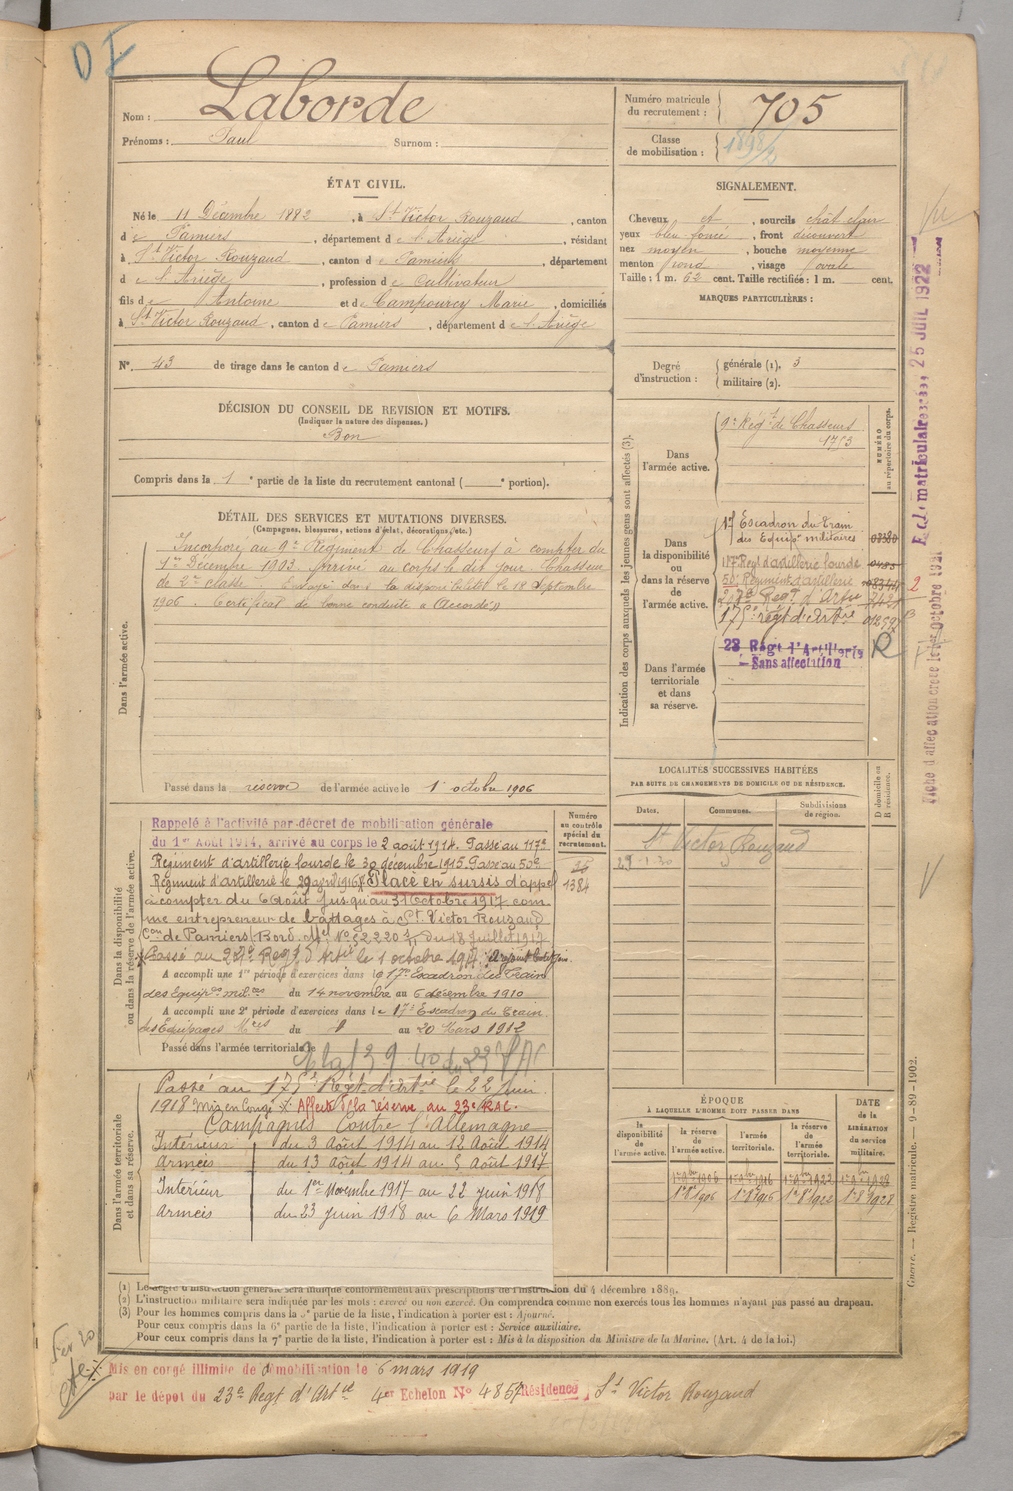 Nom : Laborde
Prénoms : Paul Surnom :
Numéro matricule du recrutement : 705
Classe de mobilisation :
ÉTAT CIVIL.
Né le 11 Décembre 1882, à St Victor Rouzaud, canton
de Pamiers, département de l'Ariège, résidant
à St Victor Rouzaud, canton de Pamiers, département
de l'Ariège, profession de Cultivateur
fils de Antoine et de Campourcy Marie, domiciliés
à St Victor Rouzaud, canton de Pamiers, département de l'Ariège
SIGNALEMENT.
Cheveux et, sourcils chât clair
yeux bleu foncé, front découvert
nez moyen, bouche moyenne
menton rond, visage ovale
Taille : 1 m. 62 cent. Taille rectifiée : 1 m. cent.
MARQUES PARTICULIÈRES :
No. 43 de tirage dans le canton de Pamiers
Degré d'instruction : générale (1). 3
militaire (2).
DÉCISION DU CONSEIL DE REVISION ET MOTIFS.
(Indiquer la nature des dispenses.)
Bon
Compris dans la 1e partie de la liste du recrutement cantonal ( e portion).
DÉTAIL DES SERVICES ET MUTATIONS DIVERSES.
(Campagnes, blessures, actions d'éclat, décorations, etc.)
Dans l'armée active.
Incorporé au 9e Régiment de Chasseurs à compter du
1er Décembre 1903. Arrivé au corps le dit jour. Chasseur
de 2me classe. Envoyé dans la disponibilité le 18 Septembre
1906. Certificat de bonne conduite « Accordé »
Passé dans la réserve de l'armée active le 1 octobre 1906
Indication des corps auxquels les jeunes gens sont affectés (3).
NUMÉRO au répertoire du corps.
Dans l'armée active.
9e Régt de Chasseurs
1753
Dans la disponibilité ou dans la réserve de l'armée active.
Escadron du Train
des Equipes militaires
117e Régt d'artillerie lourde
50e Régiment d'artillerie
175e régt d'artie
Dans l'armée territoriale et dans sa réserve.
23 Régt d'Artillerie R
Sans affectation
LOCALITÉS SUCCESSIVES HABITÉES
PAR SUITE DE CHANGEMENTS DE DOMICILE OU DE RÉSIDENCE.
Dates. Communes. Subdivisions de région. Domicile ou Résidence.
St Victor Rouzaud
Dans la disponibilité ou dans la réserve de l'armée active.
Numéro au contrôle spécial du recrutement.
1384
Rappelé à l'activité par décret de mobilisation générale
du 1er Août 1914, arrivé au corps le 2 août 1914. Passé au 117e
Régiment d'artillerie lourde le 30 décembre 1915. Passé au 50e
Régiment d'artillerie le 29 avril 1916. Placé en sursis d'appel
à compter du 6 Août jusqu'au 31 Octobre 1917 com-
me entrepreneur de battages à St. Victor Rouzaud
Con de Pamiers (Bord. Mel No 62220 du 18 juillet 1917
Passé au Régt d'Artie le 1 octobre 1917
A accompli une 1re période d'exercices dans le 17e Escadron du Train
des Equipes milres du 14 novembre au 6 décembre 1910
A accompli une 2e période d'exercices dans le 17e Escadron du Train
des Equipages Mres du 4 au 20 Mars 1912
Passé dans l'armée territoriale le
Dans l'armée territoriale et dans sa réserve.
Passé au 175e Régt d'artie le 22 juin
1918 Mis en Congé. Affecté à la réserve au 23e RAC.
Campagnes Contre l'Allemagne
Intérieur du 3 Août 1914 au 12 Août 1914
Armées du 13 août 1914 au 5 Août 1917
Intérieur du 1er Novembre 1917 au 22 juin 1918
Armées du 23 juin 1918 au 6 Mars 1919
ÉPOQUE
À LAQUELLE L'HOMME DOIT PASSER DANS
la disponibilité de l'armée active. la réserve de l'armée active. l'armée territoriale. la réserve de l'armée territoriale.
DATE de la LIBÉRATION du service militaire.
1er 8bre 1906 1er 8bre 1916 1er 8bre 1922 1er 8bre 1928
(1) Le degré d'instruction générale sera indiqué conformément aux prescriptions de l'instruction du 4 décembre 1889.
(2) L'instruction militaire sera indiquée par les mots : exercé ou non exercé. On comprendra comme non exercés tous les hommes n'ayant pas passé au drapeau.
(3) Pour les hommes compris dans la 5e partie de la liste, l'indication à porter est : Ajourné.
Pour ceux compris dans la 6e partie de la liste, l'indication à porter est : Service auxiliaire.
Pour ceux compris dans la 7e partie de la liste, l'indication à porter est : Mis à la disposition du Ministre de la Marine. (Art. 4 de la loi.)
Mis en congé illimité de démobilisation le 6 mars 1919
par le dépot du 23e Régt d'Artie 4er Echelon No 4857 Résidence St Victor Rouzaud
Guerre. — Registre matricule. — 9-89-1902.
25 JUIL 1922